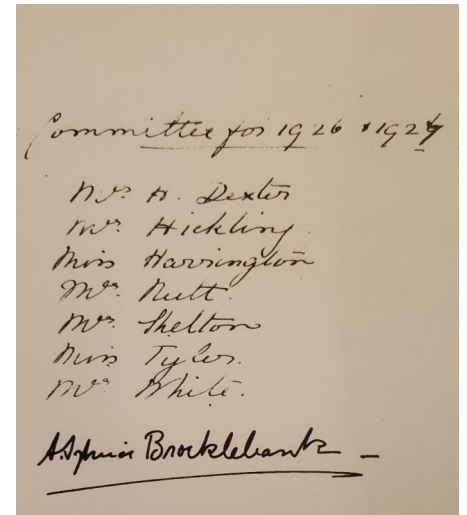 Committee for 1926 & 1927
Mrs H. Dexter
Mrs. Hickling.
Miss Harrington
Mrs. Nutt.
Mrs. Shelton
Miss Tyler.
Mrs White.
Brocklebank –